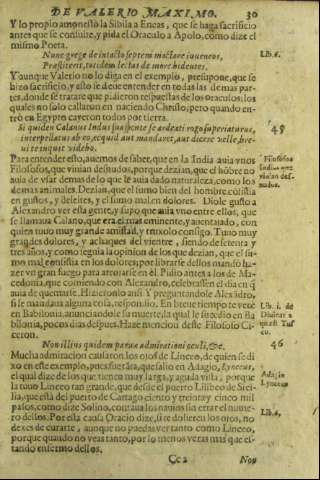 DE VALERIO MAXIMO. 30
Y lo propio amonestò la Sibila a Eneas, que se haga sacrificio
antes que se consulte, y pida el Oraculo a Apolo, como dize el
mismo Poeta.
Nunc grege de intacto septem mactare iuuencos,
Præstiterit, totidem lectas de more bidentes.
Lib. 6.
Y aunque Valerio no lo diga en el exemplo, presupone, que se
hizo sacrificio, y esto se deue entender en todas las demas par-
tes, donde se tratare que pidieron respuestas de los oraculos: los
quales no solo callaron en naciendo Christo, pero quando en-
trò en Egypto cayeron todos por tierra.
Si quidem Calanus Indus sua sponte se ardenti rogo superiaturus,
interpellatus ab eo, ecquid aut mandaret, aut dicere vellet, bre-
ui te inquit videbo.
45
Para entender esto, auemos de saber, que en la India auia vnos
Filosofos, que viuian desnudos, porque dezian, que el hõbre no
auia de vsar demas de lo que le auia dado naturaleza, como los
demas animales. Dezian, que el sumo bien del hombre cõsistia
en gustos, y deleites, y el sumo mal en dolores. Diole gusto a
Alexandro ver esta gente, y supo que auia vno entre ellos, que
se llamaua Calano, que era el mas eminente, y auentajado, con
quien tuuo muy grande amistad, y truxolo consigo. Tuuo muy
grandes dolores, y achaques del vientre, siendo de setenta y
tres años, y como seguia la opinion de los que dezian, que el su-
mo mal consistia en los dolores, por librarse dellos mandò ha-
zer vn gran fuego para arrojarse en èl. Pidio antes a los de Ma-
cedonia, que comiendo con Alexandro, celebrassen el dia en q̃
auia de quemarse. Hizieronlo assi. Y preguntandole Alexãdro,
si se mandaua alguna cosa, respondio. En breue tiempo te verè
en Babilonia, anunciandole su muerte, la qual le sucedio en Ba
bilonia, pocos dias despues. Haze mencion deste Filosofo Ci-
ceron.
Filosofos
Lib. 1. de
Diuinat.
Non illius quidem parua admirationi oculi, &c.
46
Mucha admiracion causaron los ojos de Linceo, de quien se di
xo en este exemplo, puesfuera, que salio en Adagio, Lynceus,
el qual dize de los que tienen muy larga, y aguda vista, porque
la tuuo Linceo tan grande, que desde el puerto Lilibeo de Sici-
lia, que està del puerto de Cartago ciento y treinta y cinco mil
pasos, como dize Solino, contaua los nauios sin errar el nume-
ro dellos. Por esta causa Oracio dize, si te dolieren los ojos, no
dexes de curarte, aunque no puedas ver tanto como Linceo,
porque quando no veas tanto, por lo menos veràs mas que es-
tando enfermo dellos.
Adagio
Lynceus
Lib. 1.
Cc 2 Non